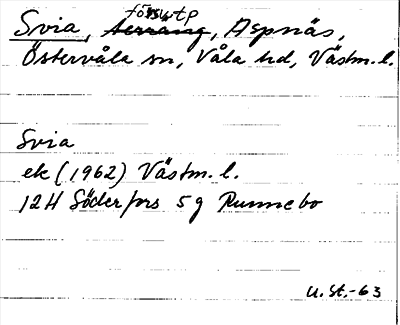 Svia, försv. tp, Aspnäs,
Östervåla sn, Våla hd, Västm. l.
Svia
ek (1962) Västm. l.
12H Söderfors 5g Runnebo
U. St. -63